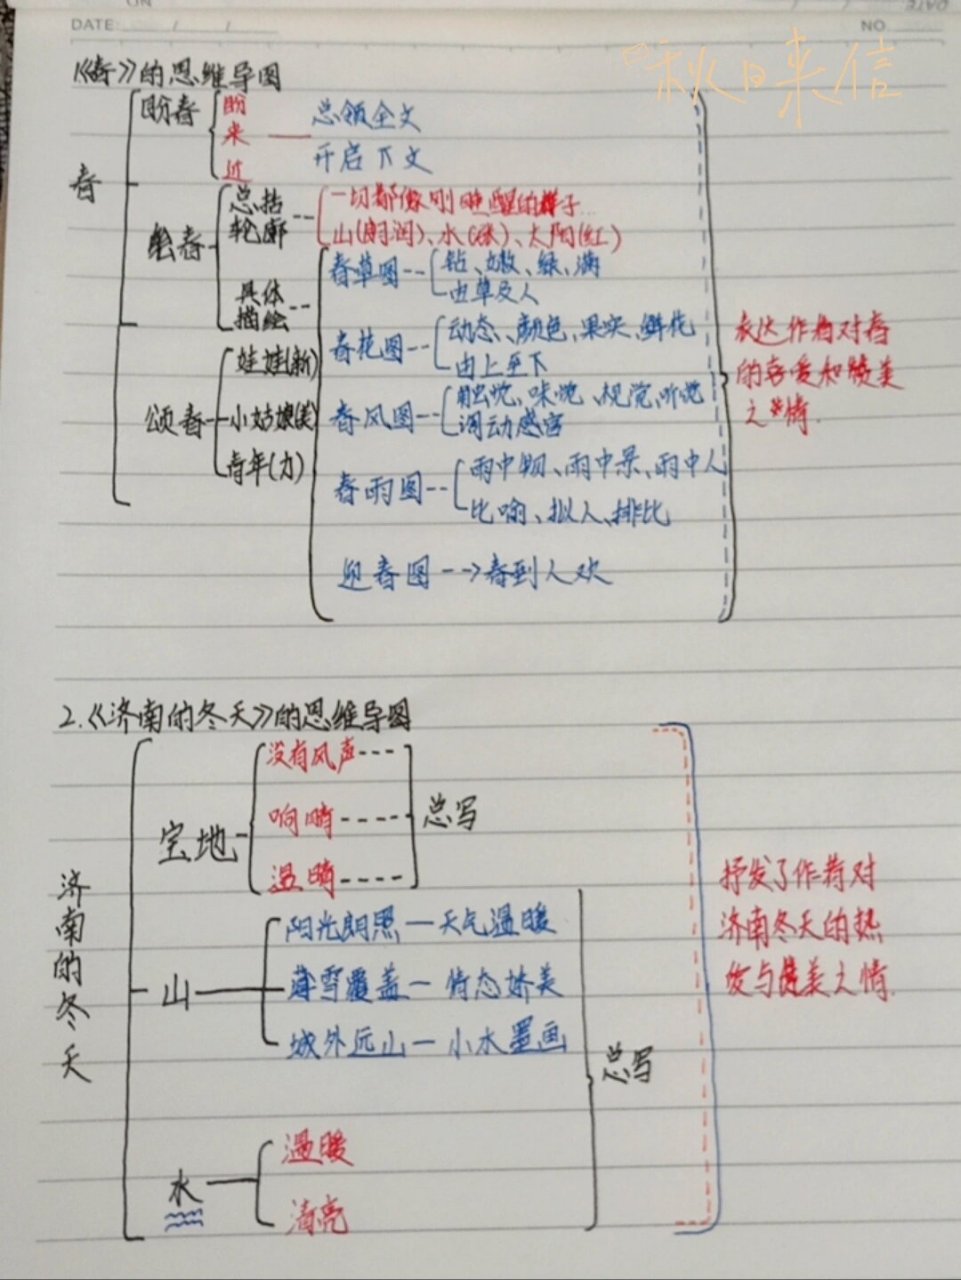 DATE
NO
秋日来信
1《春》的思维导图
春
盼春
盼
来
近
总领全文
开启下文
绘春
总括
轮廓
一切都像刚睡醒的样子...
山(朗润)、水(涨)、太阳(红)
具体
描绘
春草图
钻、嫩、绿、满
由草及人
春花图
动态、颜色、果实、鲜花
由上至下
春风图
触觉、味觉、视觉、听觉
调动感官
春雨图
雨中物、雨中景、雨中人
比喻、拟人、排比
迎春图-->春到人欢
颂春
娃娃(新)
小姑娘(美)
青年(力)
表达作者对春
的喜爱和赞美
之情.
2.《济南的冬天》的思维导图
济南的冬天
宝地
没有风声----
响晴----
温晴----
总写
山
阳光朗照—天气温暖
薄雪覆盖—情态娇美
城外远山—小水墨画
水
温暖
清亮
总写
抒发了作者对
济南冬天的热
爱与赞美之情.